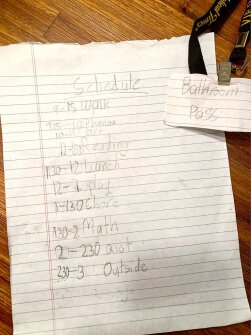 Schedule
9-95 Walk
10-11 art
11-1130 Reading
1130-12 Lunch
12-1 play
1-130 Choic
130-2 Math
2-230 qiot
230-3 Outside
Bathroom
Pass